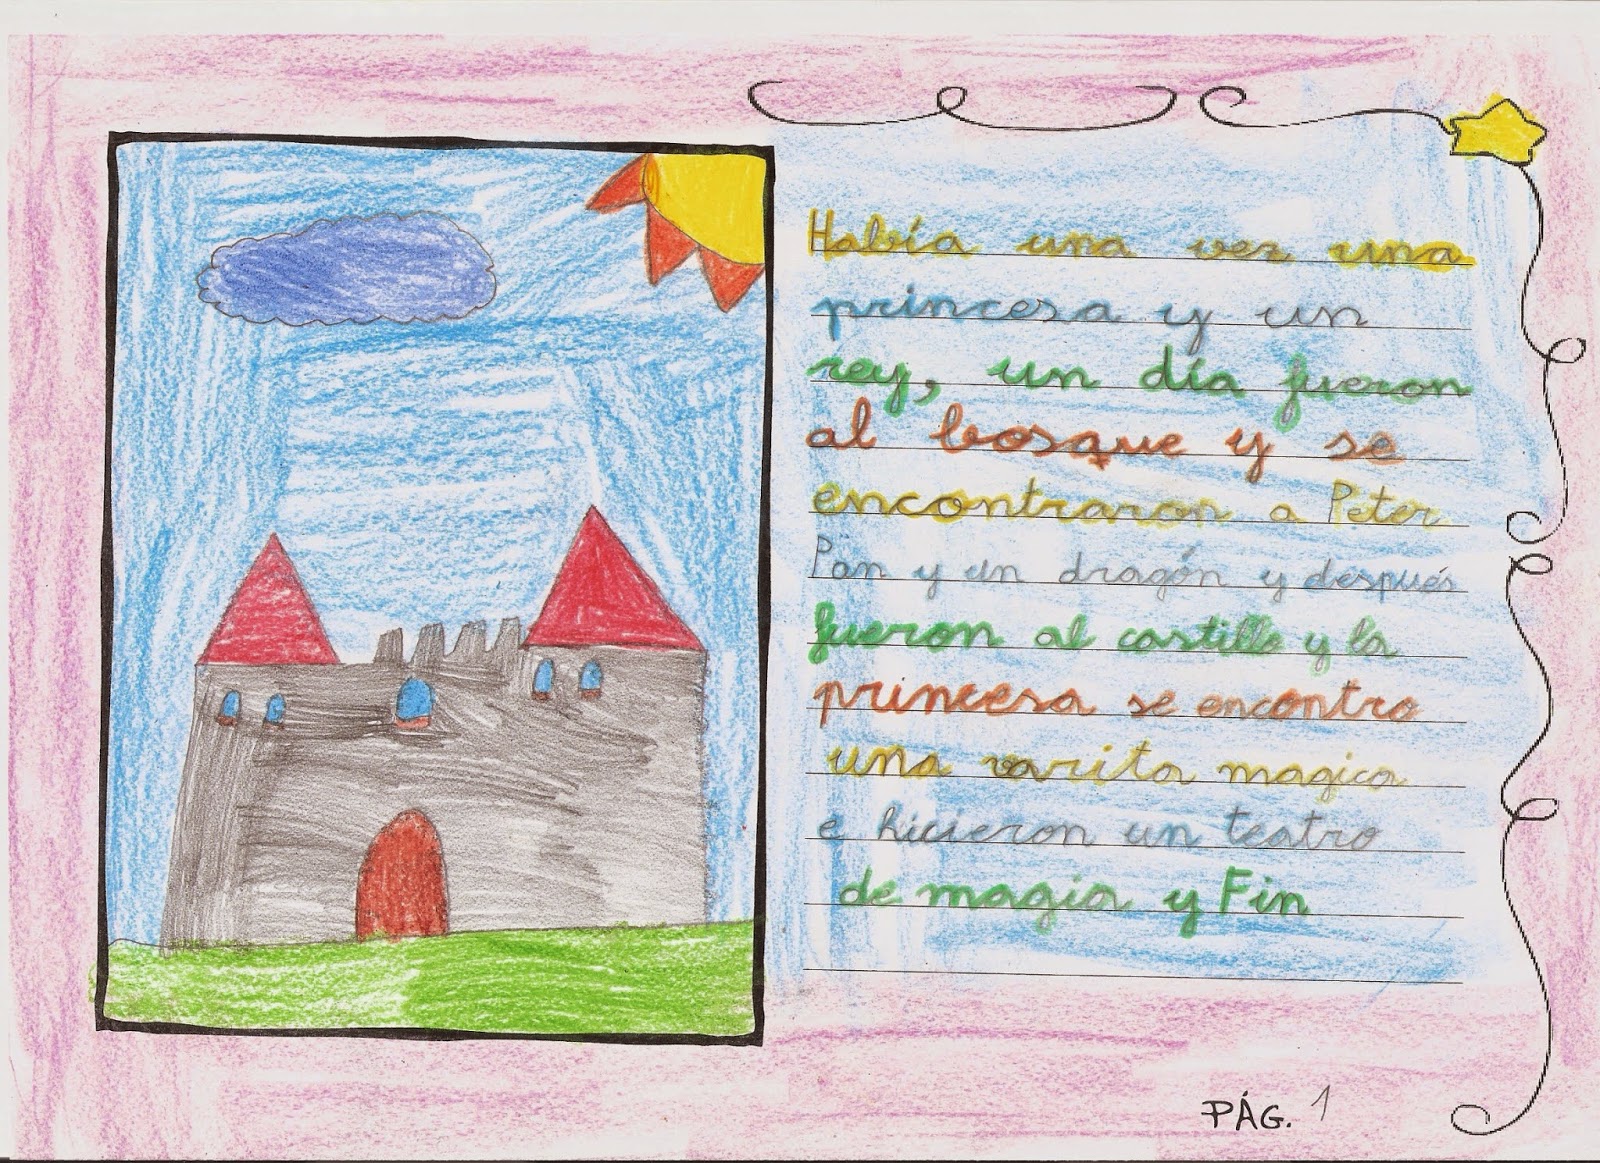 Había una vez una
princesa y un
rey, un día fueron
al bosque y se
encontraron a Peter
Pan y un dragón y después
fueron al castillo y la
princesa se encontro
una varita magica
e hicieron un teatro
de magia y Fin
PÁG. 1